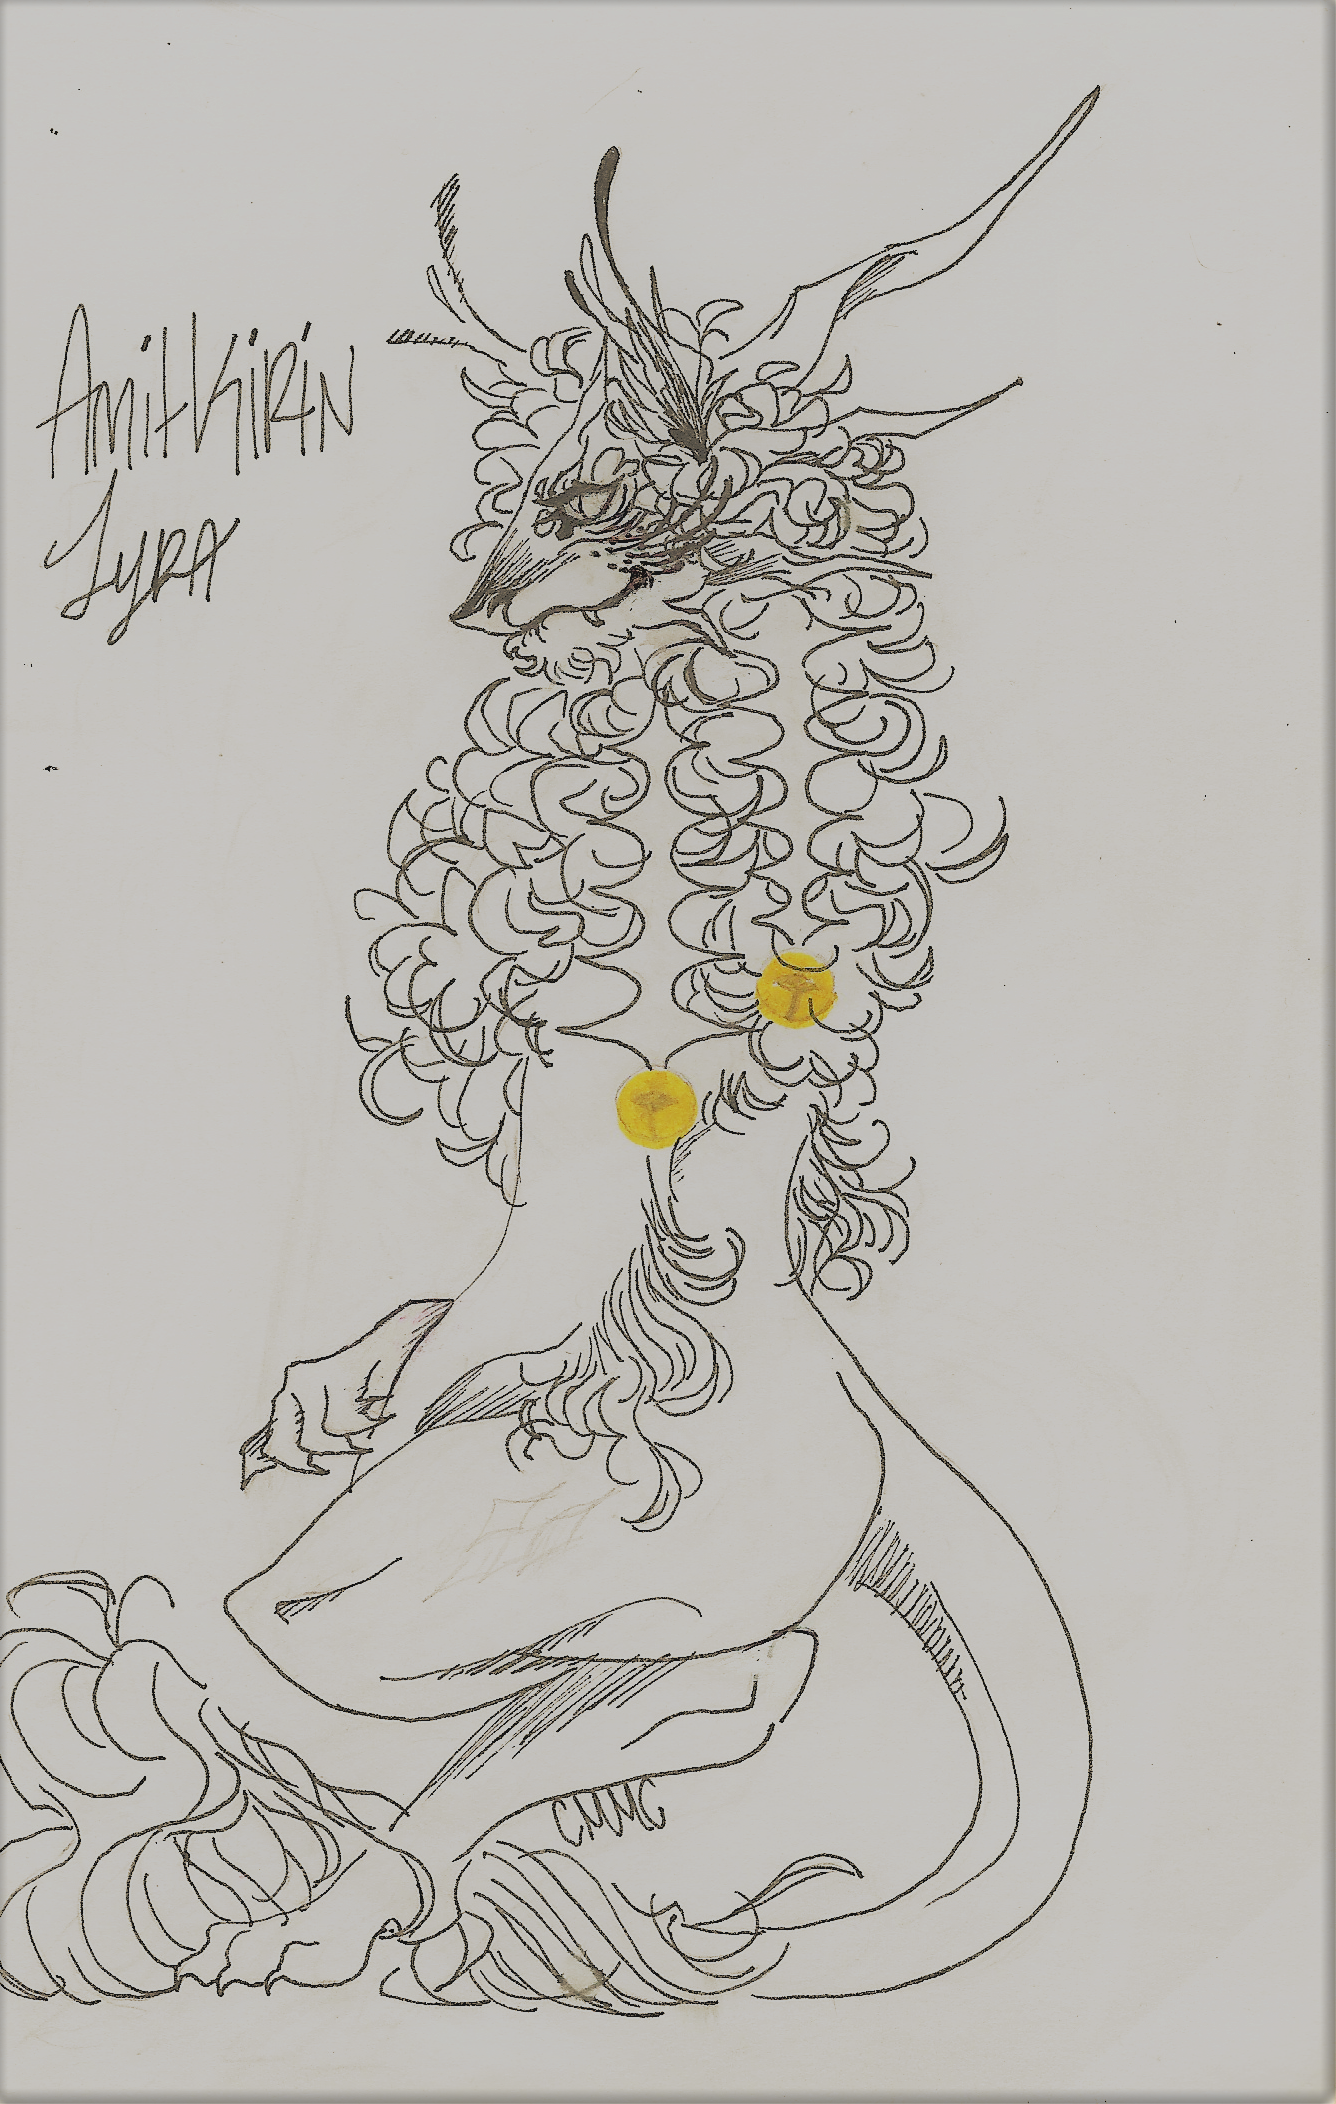 AmitKiRiN
LyRA
CMMG